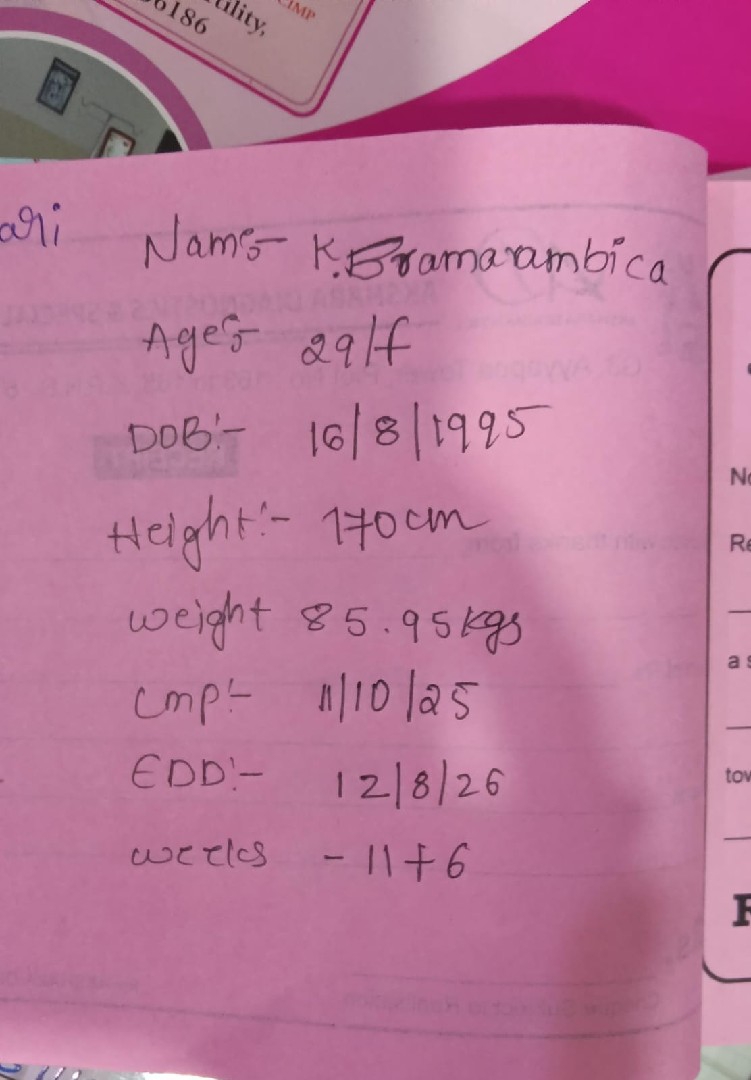 6186
ality,
CIMP
ari
Name:- K.Bramarambica
Age:- 29/f
DOB:- 16/8/1995
Height:- 170cm
weight 85.95kgs
Lmp:- 11/10/25
EDD:- 12/8/26
weeks - 11+6
No
Re
a s
tow
F